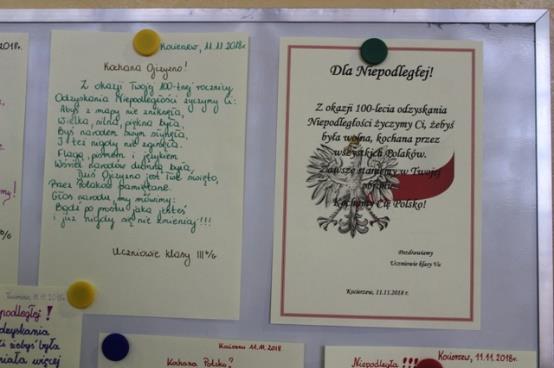 2018r.
Kocierzew, 11.11.2018r.
Kochana Ojczyzno!
Z okazji Twojej 100-tnej rocznicy
Odzyskania Niepodległości życzymy Ci:
Abyś z mapy nie znikała,
Wielka, silna, piękna była,
Byś narodem swym
I też nigdy nie zginęła.
Flagą, godłem i językiem
Wśród narodów dumną była.
Dziś Ojczyzno jest Twe święto,
Przez Polaków pamiętane.
Głos narodu, my mówimy:
Bądź po prostu jaka jesteś
i już nigdy się nie zmieniaj!!!
Uczniowie klasy III
Dla Niepodległej!
Z okazji 100-lecia odzyskania
Niepodległości życzymy Ci, żebyś
była wolna, kochana przez
wszystkich Polaków.
Zawsze staniemy w Twojej
obronie.
Kochamy Cię Polsko!
Pozdrawiamy
Uczniowie klasy Va
Kocierzew, 11.11.2018 r.
11.11.2018r.
podległej!
dzyskania
i żebyś była
miała więcej
Kocierzew 11.11.2018
Kochana Polsko!
Kocierzew, 11.11.2018r.
Niepodległa!!!